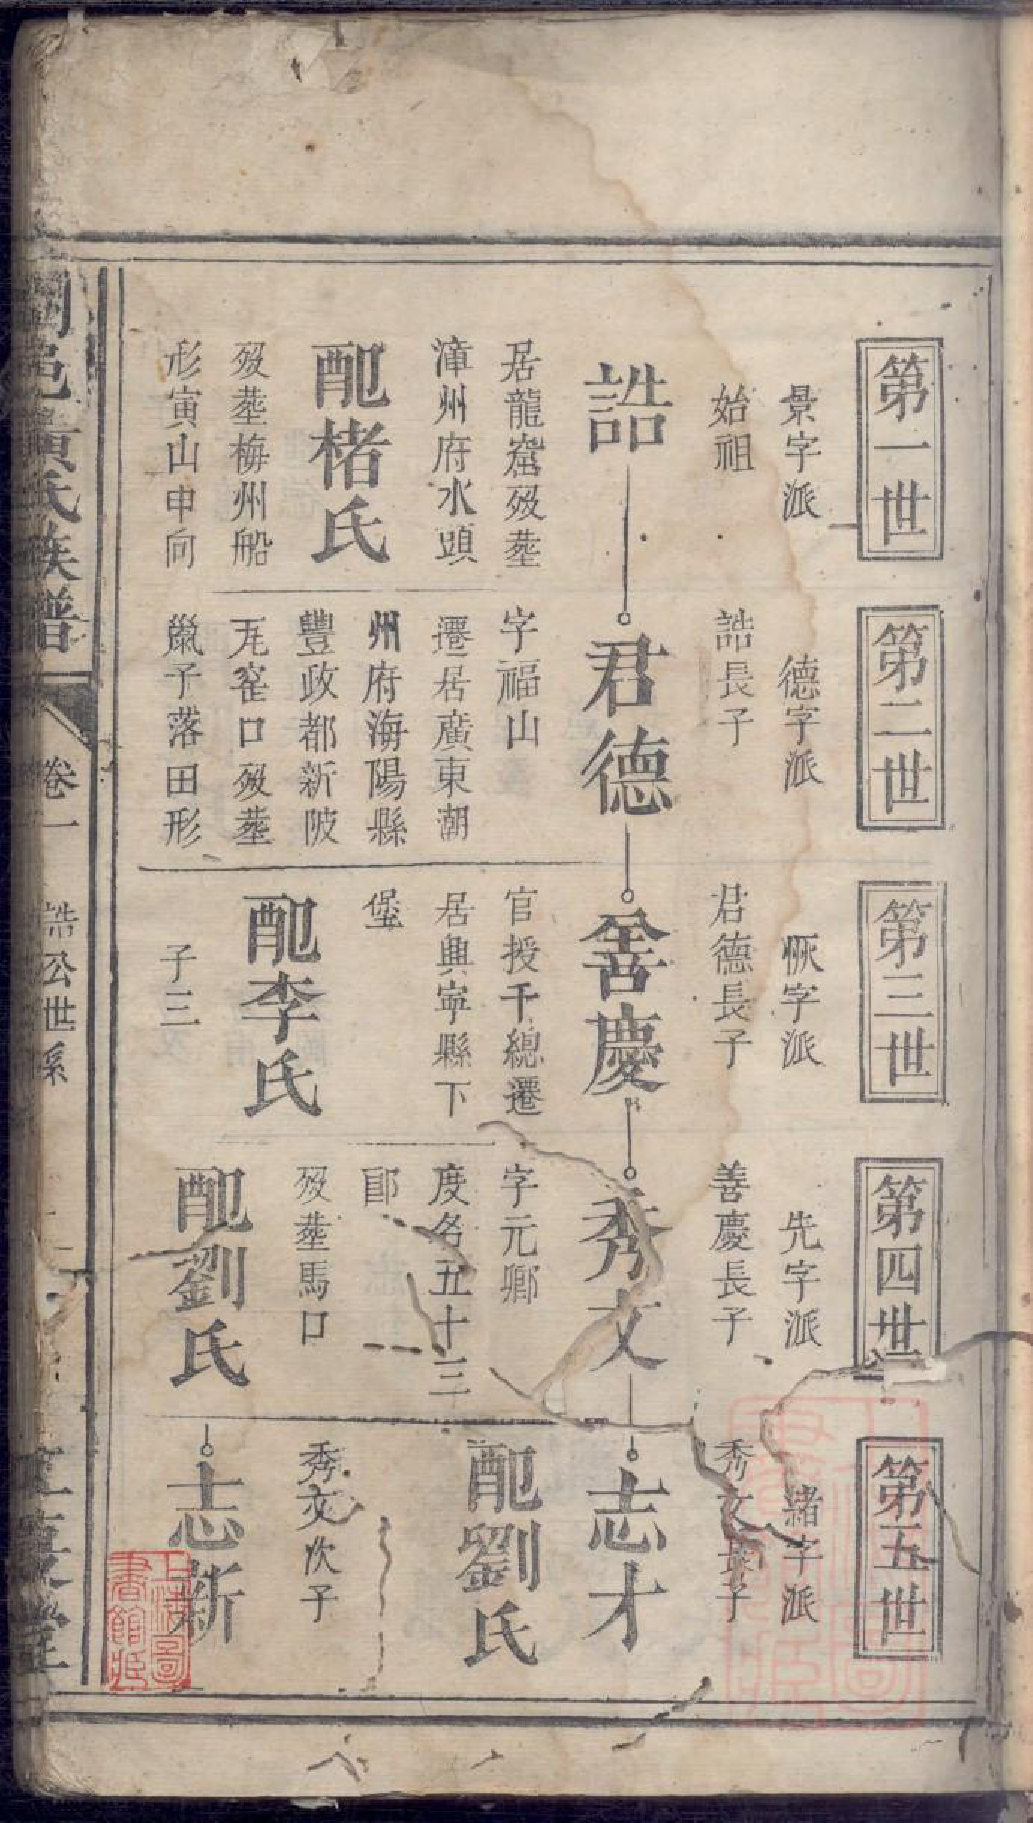 第一世
景字派
始祖
誥
居龍窟歿塟
漳州府水頭
配楮氏
歿塟梅州船
形寅山申向
第二世
德字派
誥長子
君德
字福山
遷居廣東潮
州府海陽縣
豐政都新陂
瓦窑口歿塟
子落田形
第三世
恢字派
君德長子
善慶
官授千總遷
居興寧縣下
堡
配李氏
子三
第四世
先字派
善慶長子
秀文
字元卿
度名五十三
郎
歿塟馬口
配劉氏
第五世
緒字派
秀文長子
志才
配劉氏
秀文次子
志新
邑黃氏族譜
卷一
誥公世系
堂
上海圖書館藏